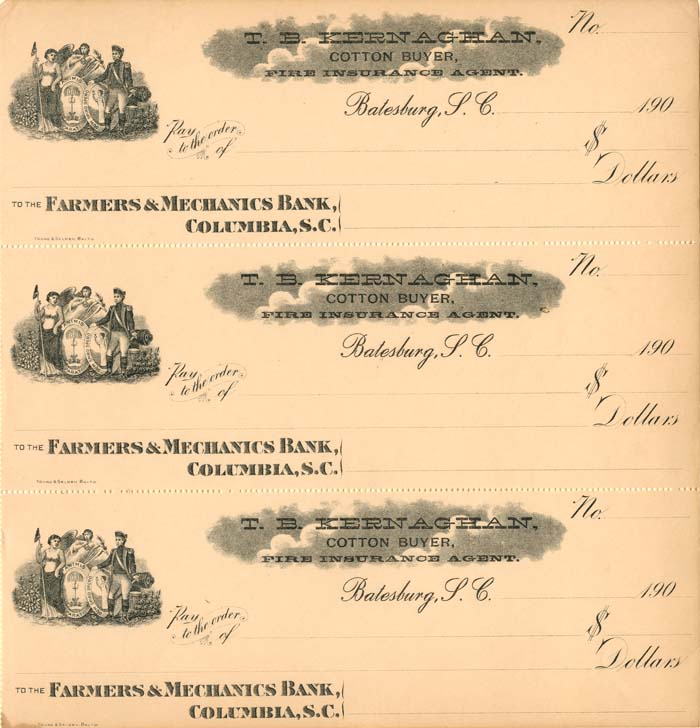 No.
T. B. KERNAGHAN,
COTTON BUYER,
FIRE INSURANCE AGENT.
Batesburg, S. C. 190
Pay to the order of $
Dollars
TO THE FARMERS & MECHANICS BANK,
COLUMBIA, S.C.
YOUNG & SELDEN, BALTO.
No.
T. B. KERNAGHAN,
COTTON BUYER,
FIRE INSURANCE AGENT.
Batesburg, S. C. 190
Pay to the order of $
Dollars
TO THE FARMERS & MECHANICS BANK,
COLUMBIA, S.C.
YOUNG & SELDEN, BALTO.
No.
T. B. KERNAGHAN,
COTTON BUYER,
FIRE INSURANCE AGENT.
Batesburg, S. C. 190
Pay to the order of $
Dollars
TO THE FARMERS & MECHANICS BANK,
COLUMBIA, S.C.
YOUNG & SELDEN, BALTO.